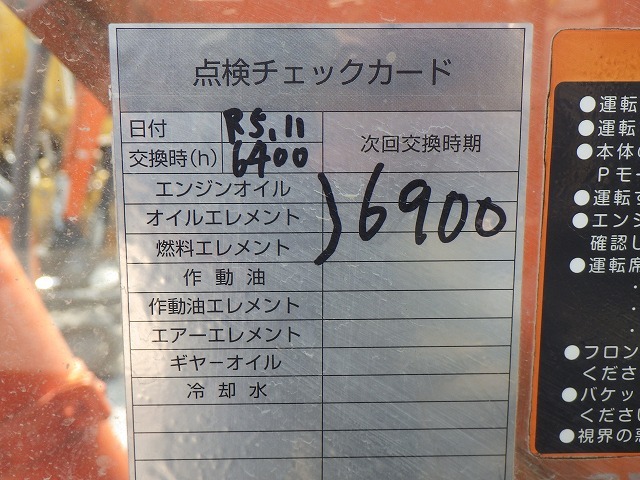 点検チェックカード
日付 R5.11
交換時(h) 6400
次回交換時期
エンジンオイル
オイルエレメント
燃料エレメント
) 6900
作動油
作動油エレメント
エアーエレメント
ギヤーオイル
冷却水
●運転
●運転
●本体の
Pモー
●運転す
●エンジ
確認し
●運転席
・
・
・
●フロン
くださ
●バケッ
ください
●視界の悪